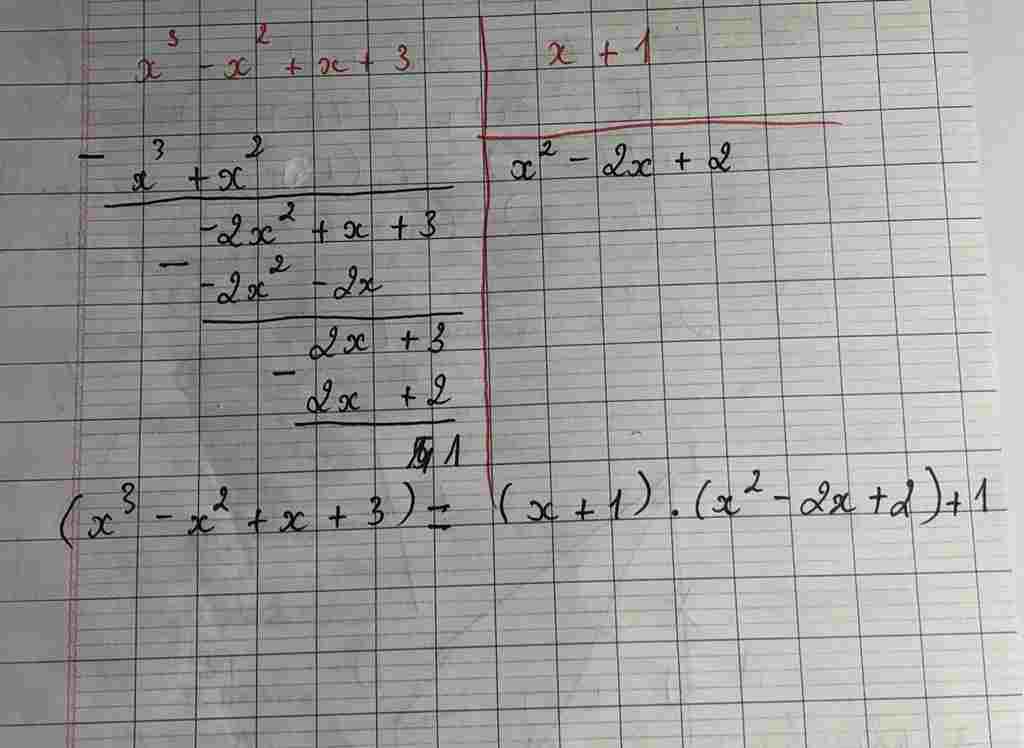 x³ - x² + x + 3 | x + 1
- x³ + x² | x² - 2x + 2
-2x² + x + 3
- -2x² - 2x
2x + 3
- 2x + 2
1
(x³ - x² + x + 3) = (x + 1) . (x² - 2x + 2) + 1